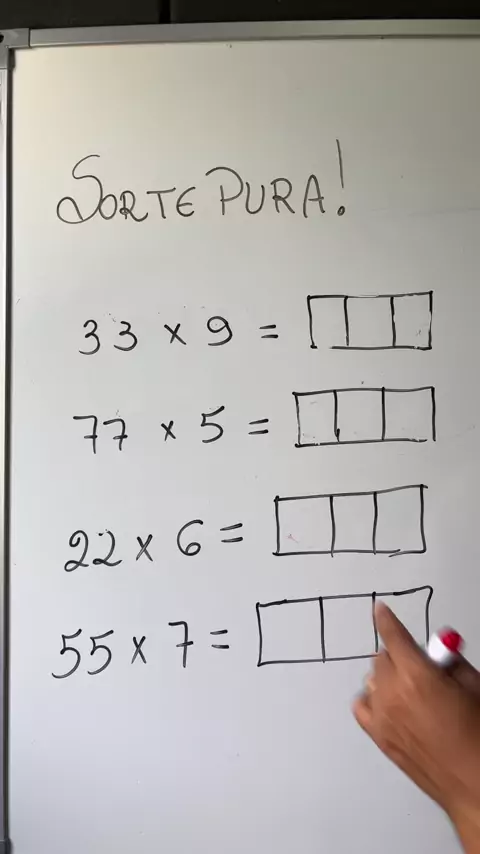 SORTE PURA!
33 x 9 =
77 x 5 =
22 x 6 =
55 x 7 =